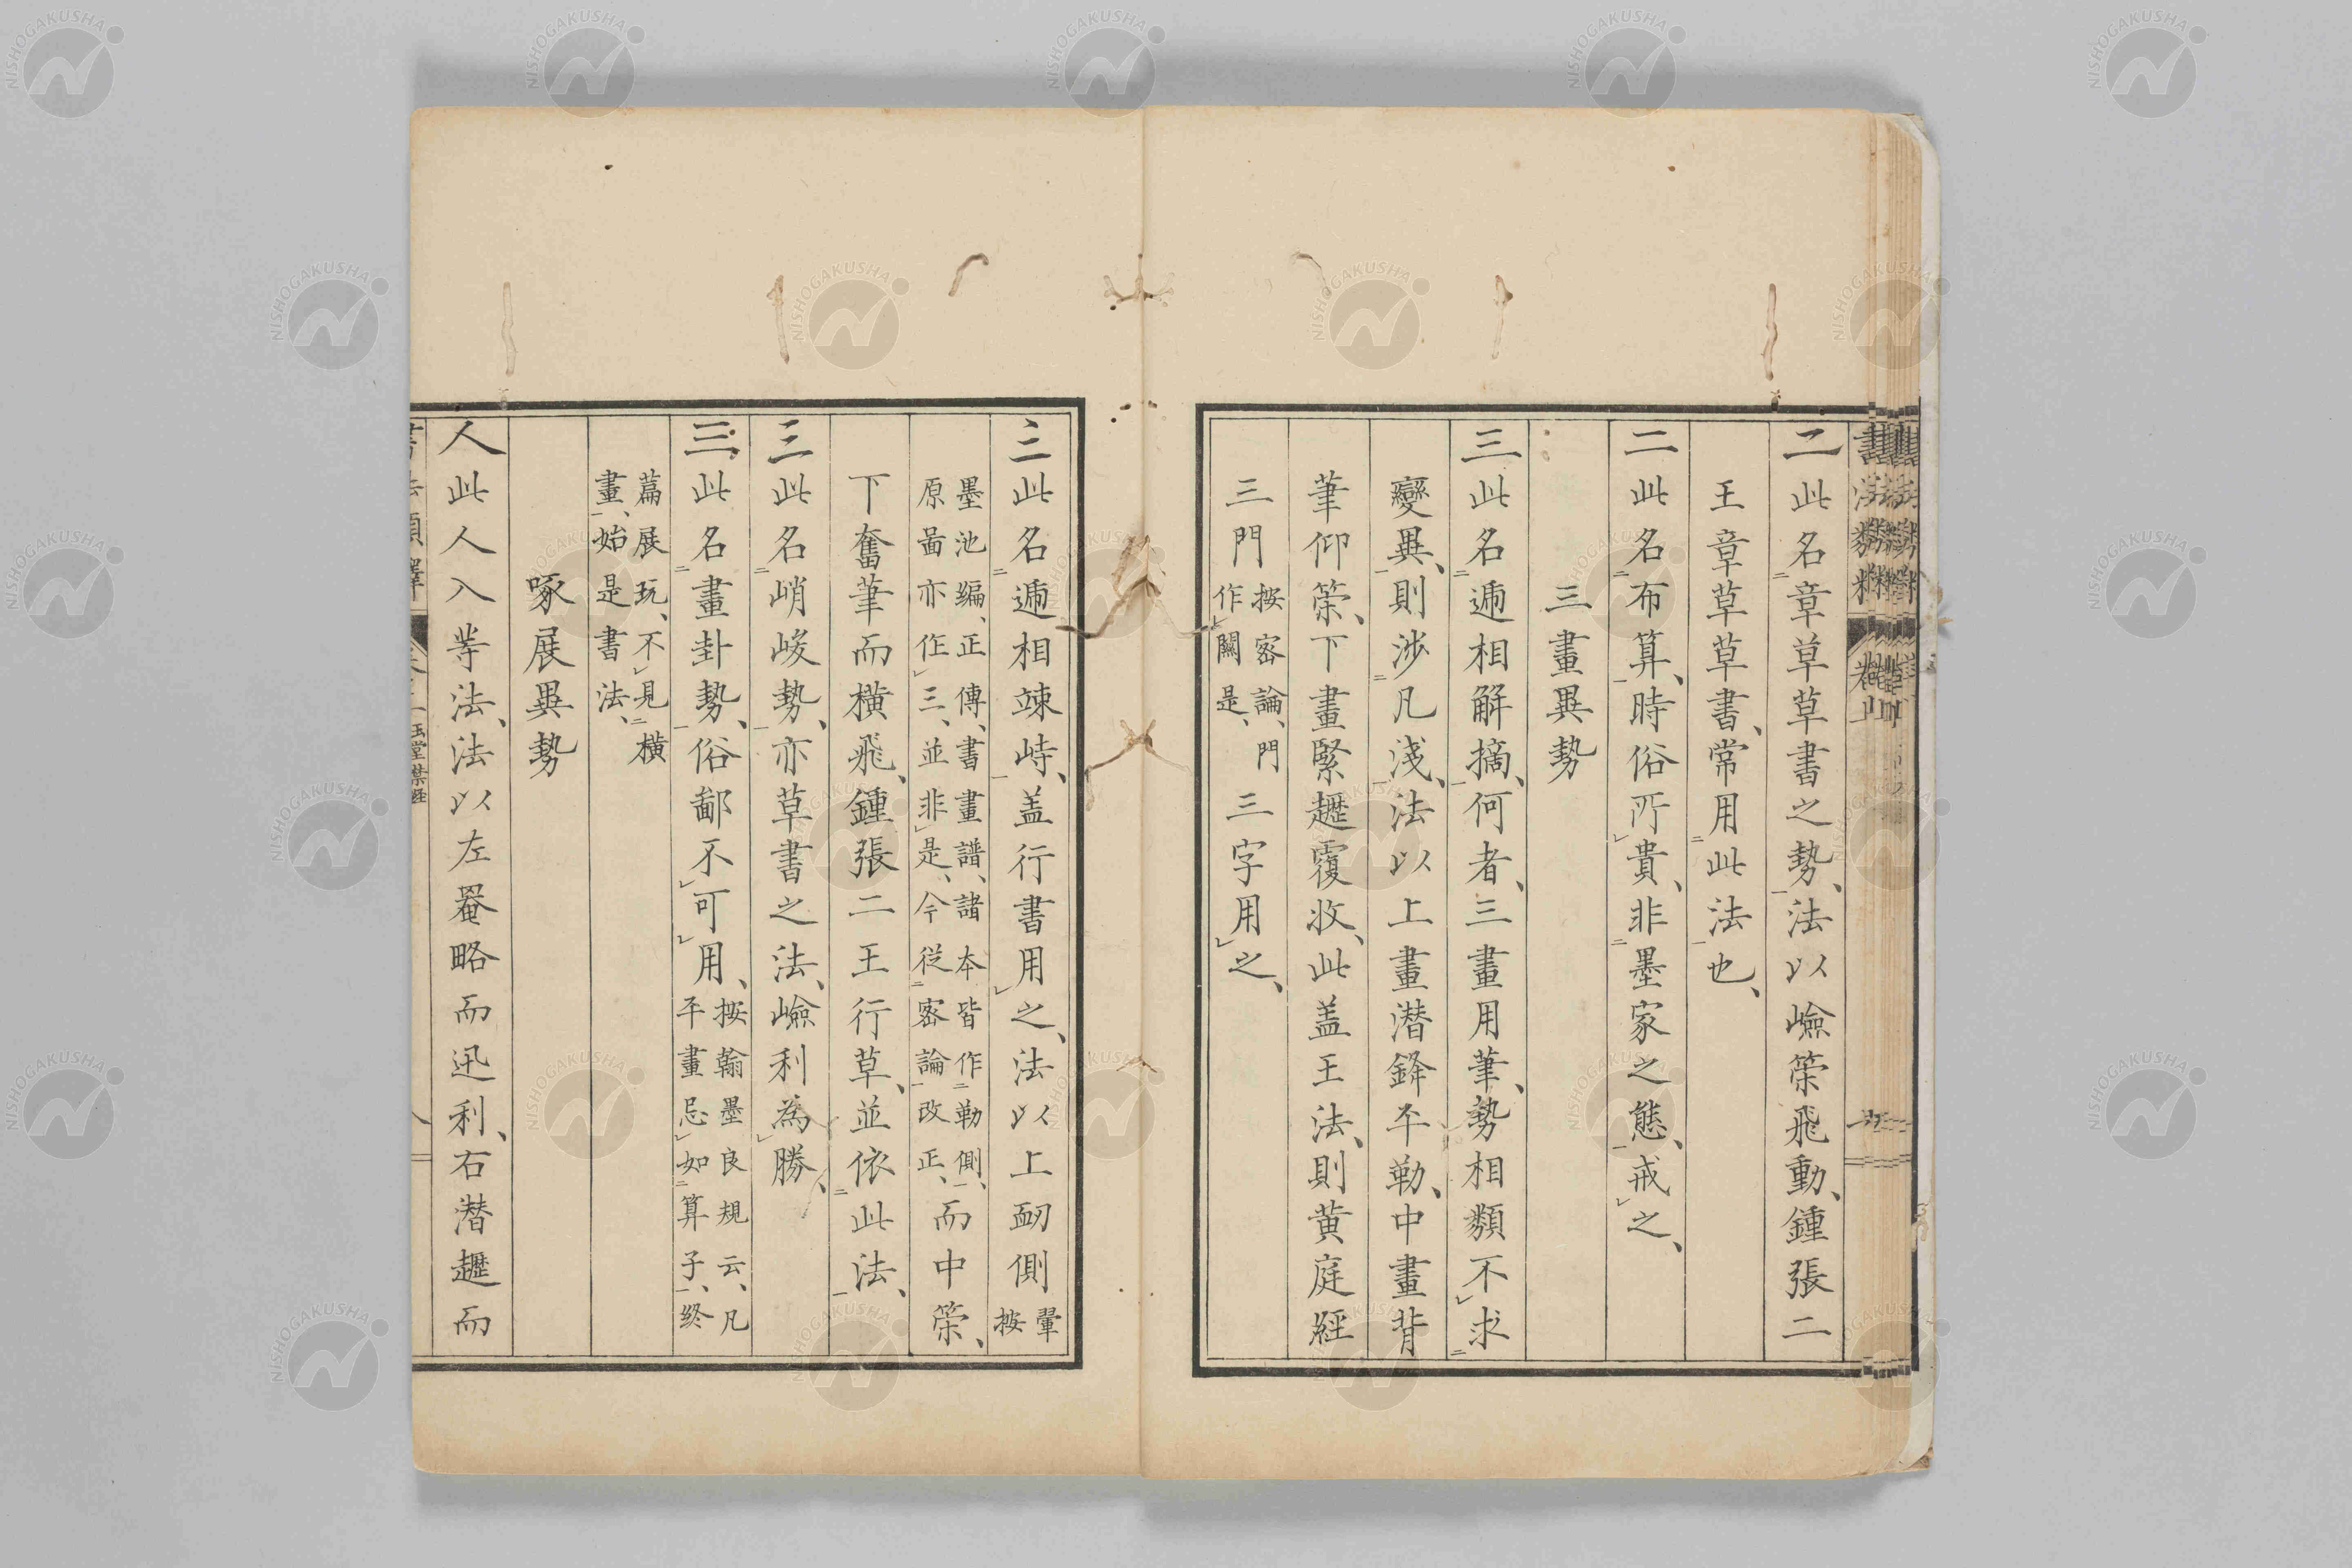 二此名章草草書之勢、法以嶮策飛動、鍾張二
王章草草書、常用此法也、
二此名布算、時俗所貴、非墨家之態、戒之、
三畫異勢
三此名遞相解摘、何者、三畫用筆、勢相類不求
變異、則涉凡淺、法以上畫潜鋒平勒、中畫背
筆仰策、下畫緊趯覆收、此盖王法、則黄庭經
三門按密論、門作關是、三字用之、
三此名遞相竦峙、盖行書用之、法以上衂側按翬
墨池編、正傳、書畫譜、諸本皆作勒側、
原啚亦作三、並非是、今從密論改正、而中策、
下奮筆而橫飛、鍾張二王行草、並依此法、
三此名峭峻勢、亦草書之法、嶮利為勝、
三此名畫卦勢、俗鄙不可用、按翰墨良規云、凡平畫忌如算子、終
篇展玩、不見橫
畫、始是書法、
啄展異勢
人此人入䓁法、法以左罨略而迅利、右潜趯而
NISHOGAKUSHA